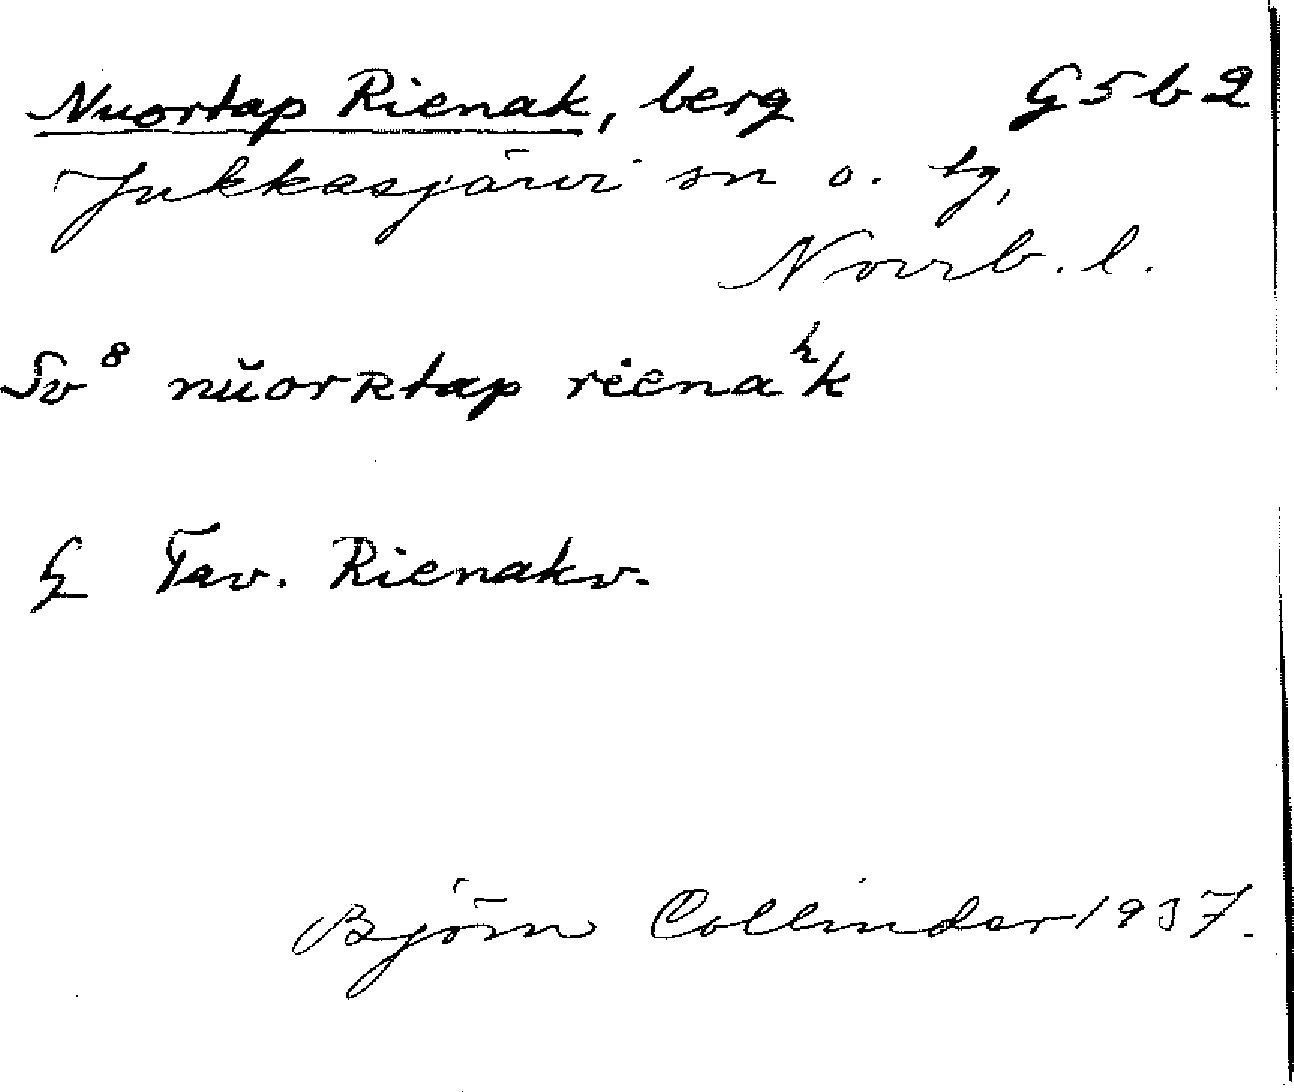 Nuortap Rienak, berg G5b2
Jukkasjärvi sn o. tg,
Norrb. l.
Sv⁸ nŭorʀtap riena ʰk
G Tav. Rienakv.
Björn Collinder 1937.